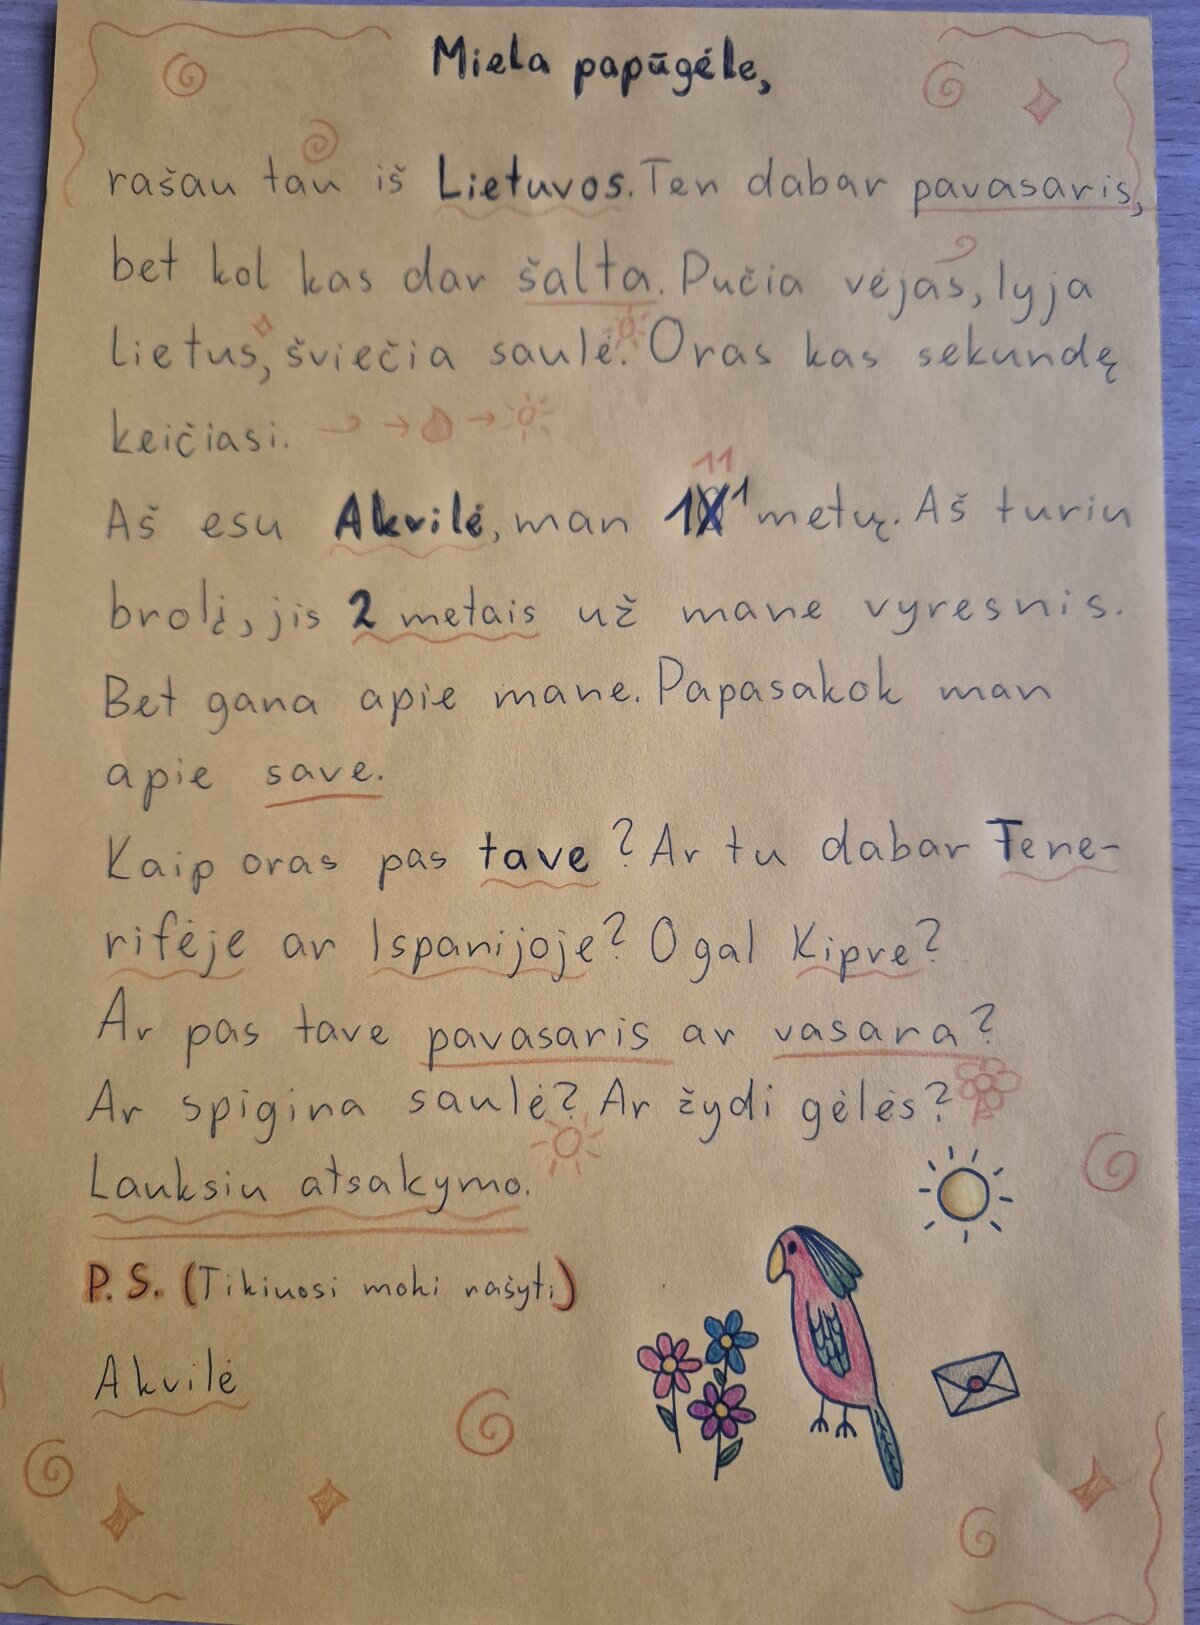 Miela papūgėle,
rašau tau iš Lietuvos. Ten dabar pavasaris,
bet kol kas dar šalta. Pučia vėjas, lyja
lietus, šviečia saulė. Oras kas sekundę
keičiasi.
11
Aš esu Akvilė, man 11 metų. Aš turiu
brolį, jis 2 metais už mane vyresnis.
Bet gana apie mane. Papasakok man
apie save.
Kaip oras pas tave? Ar tu dabar Tene-
rifėje ar Ispanijoje? O gal Kipre?
Ar pas tave pavasaris ar vasara?
Ar spigina saulė? Ar žydi gėlės?
Lauksiu atsakymo.
P.S. (Tikiuosi moki rašyti)
Akvilė